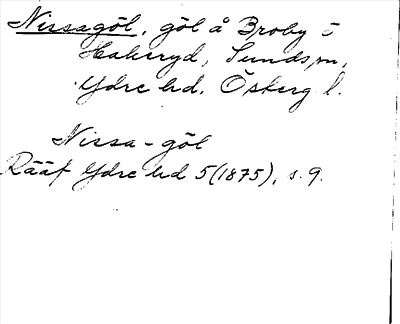 Nissagöl, göl å Broby i
Hakeryd, Sunds sn,
Ydre hd. Österg l.
Nissa-göl
Rääf Ydre hd 5(1875), s. 9.